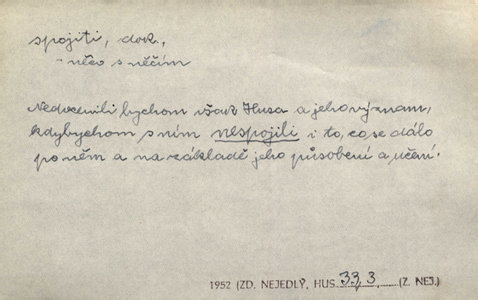 spojiti, dok.,
- něco s něčím
Nedocenili bychom však Husa a jeho význam,
kdybychom s ním nespojili i to, co se dálo
po něm a na základě jeho působení a učení.
1952 (ZD. NEJEDLÝ, HUS 33, 3 (Z. NEJ.)